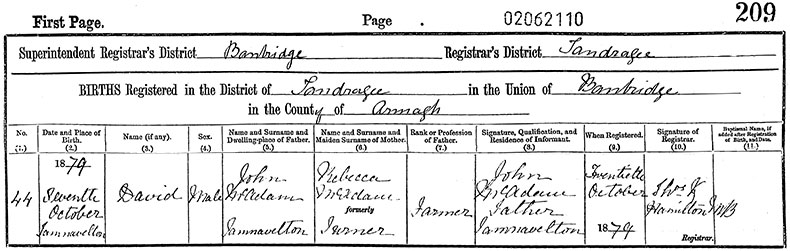 First Page.
Page .
02062110
209
Superintendent Registrar's District Banbridge Registrar's District Tandragee
BIRTHS Registered in the District of Tandragee in the Union of Banbridge
in the County of Armagh
No. (1.)
Date and Place of Birth. (2.)
Name (if any). (3.)
Sex. (4.)
Name and Surname and Dwelling-place of Father. (5.)
Name and Surname and Maiden Surname of Mother. (6.)
Rank or Profession of Father. (7.)
Signature, Qualification, and Residence of Informant. (8.)
When Registered. (9.)
Signature of Registrar. (10.)
Baptismal Name, if added after Registration of Birth, and Date. (11.)
44
1879
Seventh
October
Jamnavelton
David
Male
John
McAdam
Jamnavelton
Rebecca
McAdam
formerly
Turner
Farmer
John
McAdam
Father
Jamnavelton
Twentieth
October
1879
Thos
Hamilton
Registrar.